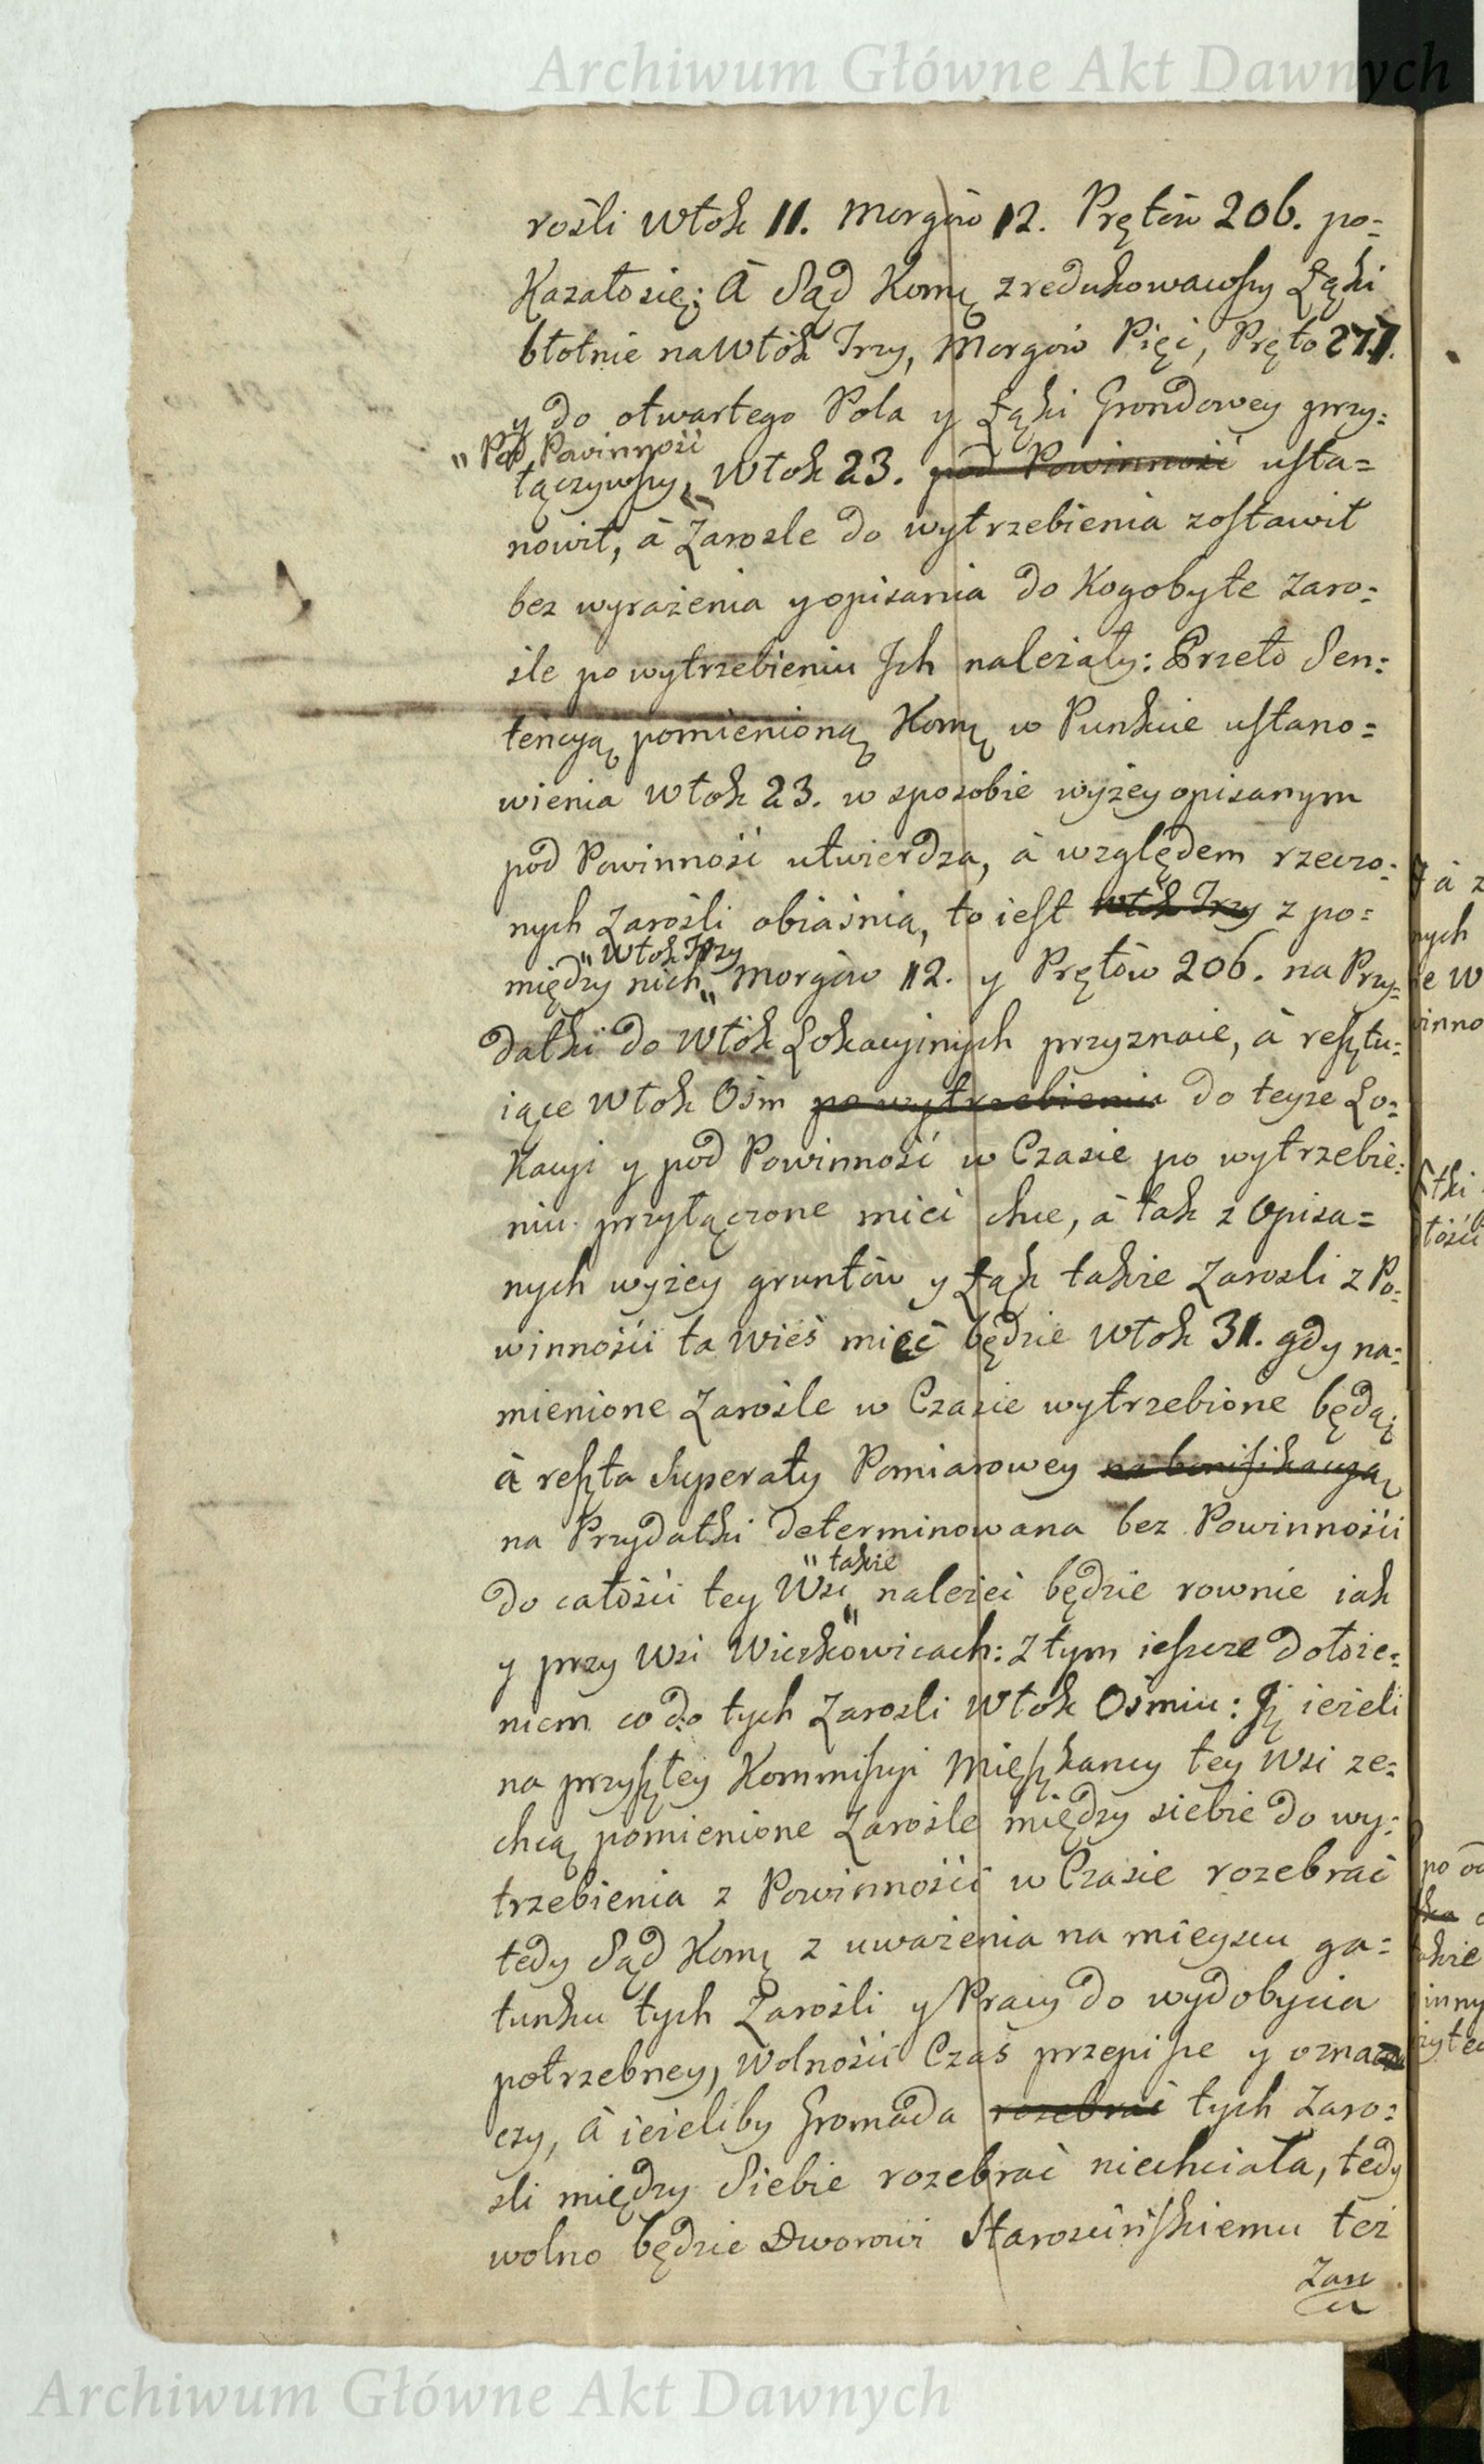 Archiwum Główne Akt Dawnych
rośli Włok 11. Morgów 12. Prętów 206. po=
Kazało się; à Sąd Komꝫ zredukowawszy Łąki
błotnie na Włók Trzy, Morgów Pięć, Pręto 277.
y do otwartego Pola y Łąki Grondowey przy=
" Pod Powinność
łączywszy, " Włok 23. pod Powinność usta=
nowił, à Zarosle do wytrzebienia zostawił
bez wyrażenia y opisania do Kogobyte zaro=
śle po wytrzebieniu Ich należały: Przeto Sen=
tencyą pomienioną Komꝫ w Punkcie ustano=
wienia Włok 23. w sposobie wyżey opisanym
pod Powinność utwierdza, à względem rzeczo=
nych Zarośli obiaśnia, to iest Włók Trzy z po=
" Włok Trzy
między nich " Morgów 12. y Prętów 206. na Przy=
datki do Włók Lokacyinych przyznaie, à resztu=
iące Włok Ośm po wytrzebieniu do teyże Lo=
Kacyi y pod Powinność w Czasie po wytrzebie=
niu przyłączone mieć chce, à tak z Opisa=
nych wyżey gruntów y Łąk także Zarosli z Po=
winności ta wieś mieć będzie Włok 31. gdy na=
mienione Zarośle w Czasie wytrzebione będą;
à reszta Superaty Pomiarowey na bonifikacyą
na Przydatki determinowana bez Powinności
" także
do całości tey Wsi " należeć będzie rownie iak
y przy Wsi Wiczkowicach: z tym ieszcze dołoże=
niem co do tych Zarosli Włok Ośmiu: Iż ieżeli
na przyszłey Kommissyi Mieszkancy tey Wsi ze=
chcą pomienione Zarośle między siebie do wy=
trzebienia z Powinności w Czasie rozebrać
tedy Sąd Komꝫ z uważenia na mieyscu ga=
tunku tych Zarośli y Pracy do wydobycia
potrzebney, Wolności Czas przepisze y ozna
czy, à ieżeliby Gromada rozebrać tych Zaro=
sli między Siebie rozebrać niechciała, tedy
wolno będzie Dworowi Starościńskiemu też
Zaru
Archiwum Główne Akt Dawnych